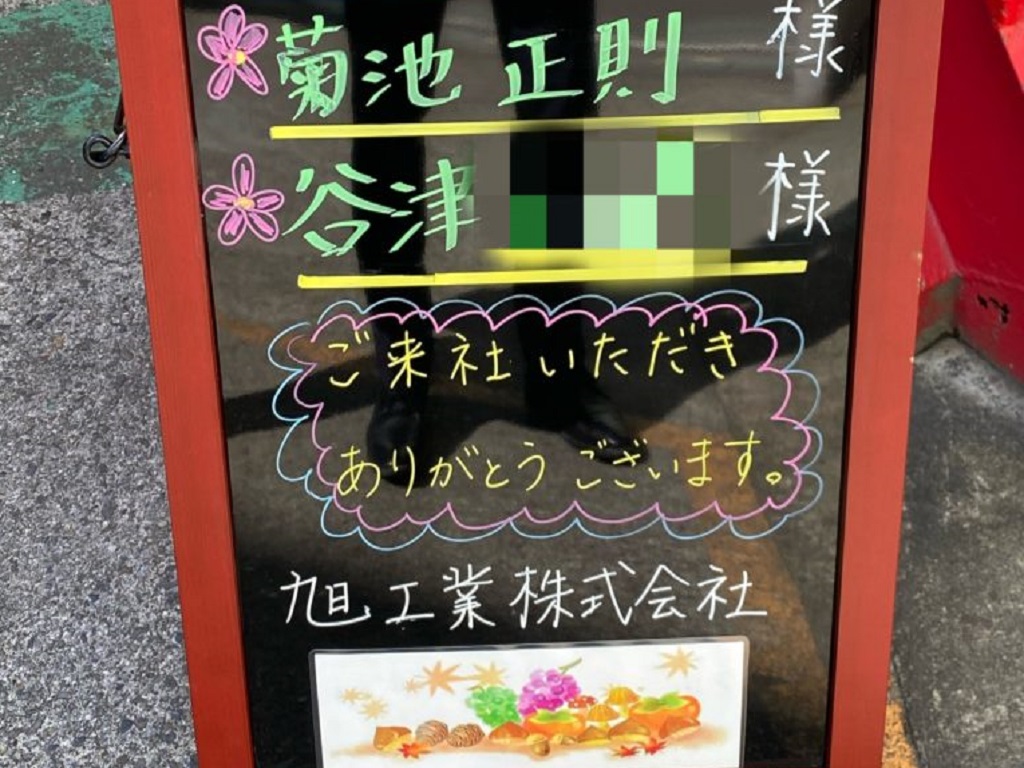 菊池 正則 様
谷津 様
ご来社いただき
ありがとうございます。
旭工業株式会社